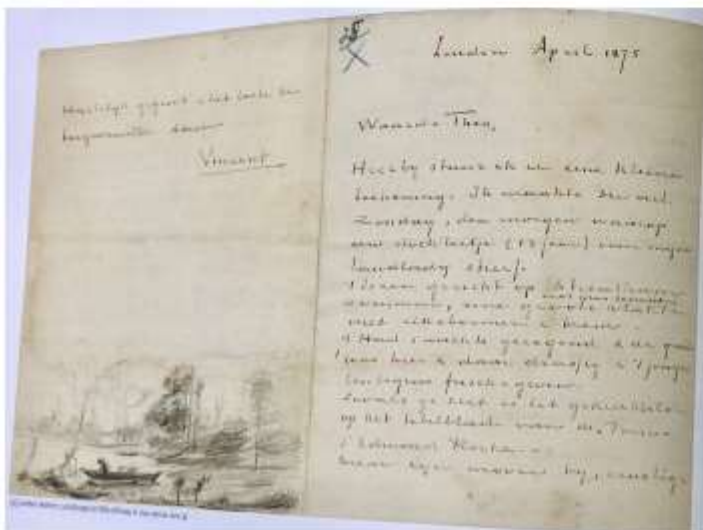 Hartelijk gegroet & het beste en
toegewenscht door
Vincent
25
London April 1875
Waarde Theo,
Hierby stuur ik u eene kleine
teekening. Ik maakte die vorl.
Zondag, den morgen waarop
een dochtertje (13 jaar) van mijn
landlady stierf.
't is een gezicht op Streatham
common, eene groote vlakte
met gras begroeid
met eikeboomen & brem.
't Had 's nachts geregend & de grond
was hier & daar drassig & 't jonge
lentegras frisch & groen.
Zooals ge ziet is het gekrabbeld
op het titelblad van de
d'Edmond Roche.
Daar zijn mooie bij, ernstige